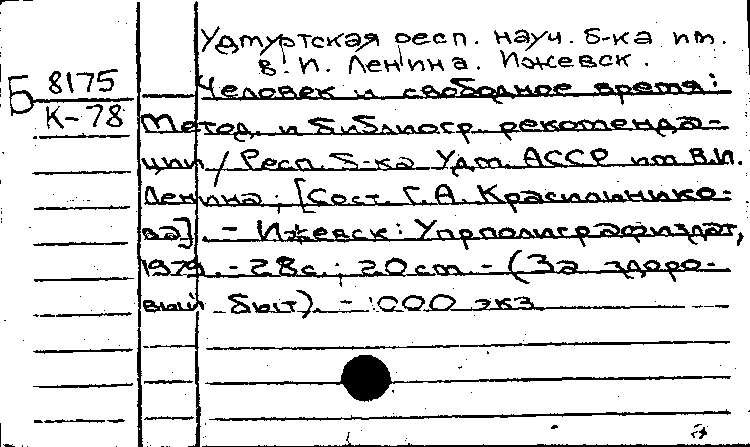 Удмуртская респ. науч. б-ка им.
В. И. Ленина. Ижевск.
Б 8175
К-78
Человек и свободное время:
Метод. и библиогр. рекоменда-
ции / Респ. б-ка Удм. АССР им В.И.
Ленина; [Сост. Г.А. Красильнико-
ва]. - Ижевск: Упрполиграфиздат,
1979. - 28с.; 20см - (За здоро-
вый быт). - 1000 экз